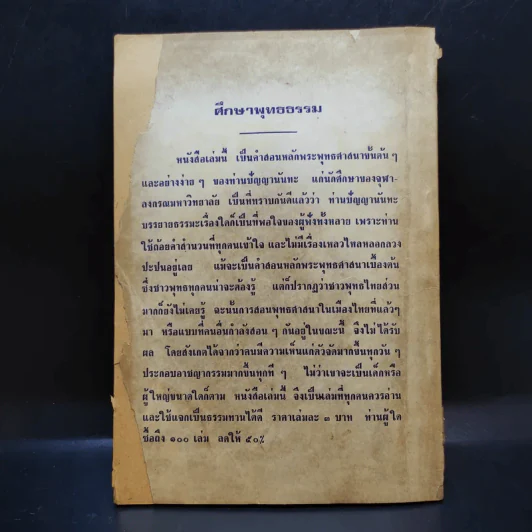 ศึกษาพุทธธรรม
หนังสือเล่มนี้ เป็นคำสอนหลักพระพุทธศาสนาขั้นต้น ๆ
และอย่างง่าย ๆ ของท่านปัญญานันทะ แก่นักศึกษาของจุฬา-
ลงกรณมหาวิทยาลัย เป็นที่ทราบกันดีแล้วว่า ท่านปัญญานันทะ
บรรยายธรรมะเรื่องใดก็เป็นที่พอใจของผู้ฟังทั้งหลาย เพราะท่าน
ใช้ถ้อยคำสำนวนที่ทุกคนเข้าใจ และไม่มีเรื่องเหลวไหลหลอกลวง
ปะปนอยู่เลย แม้จะเป็นคำสอนหลักพระพุทธศาสนาเบื้องต้น
ซึ่งชาวพุทธทุกคนน่าจะต้องรู้ แต่ก็ปรากฏว่าชาวพุทธไทยส่วน
มากก็ยังไม่เคยรู้ ฉะนั้นการสอนพุทธศาสนาในเมืองไทยที่แล้วๆ
มา หรือแบบที่คนอื่นกำลังสอน ๆ กันอยู่ในขณะนี้ จึงไม่ได้รับ
ผล โดยสังเกตได้จากว่าคนมีความเห็นแก่ตัวจัดมากขึ้นทุกวัน ๆ
ประกอบอาชญากรรมมากขึ้นทุกที ๆ ไม่ว่าเขาจะเป็นเด็กหรือ
ผู้ใหญ่ขนาดใดก็ตาม หนังสือเล่มนี้ จึงเป็นเล่มที่ทุกคนควรอ่าน
และใช้แจกเป็นธรรมทานได้ดี ราคาเล่มละ ๓ บาท ท่านผู้ใด
ซื้อถึง ๑๐๐ เล่ม ลดให้ ๕๐%